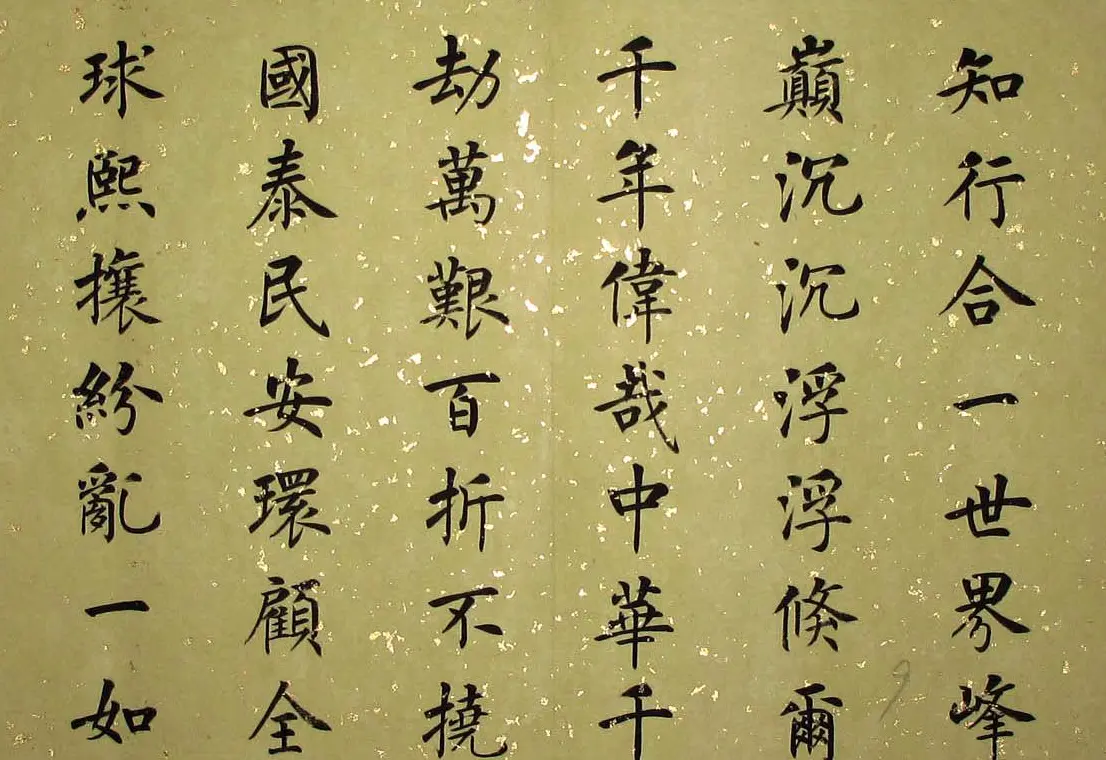 知行合一世界峰
巔沉沉浮浮倏爾
千年偉哉中華千
劫萬艱百折不撓
國泰民安環顧全
球熙攘紛亂一如